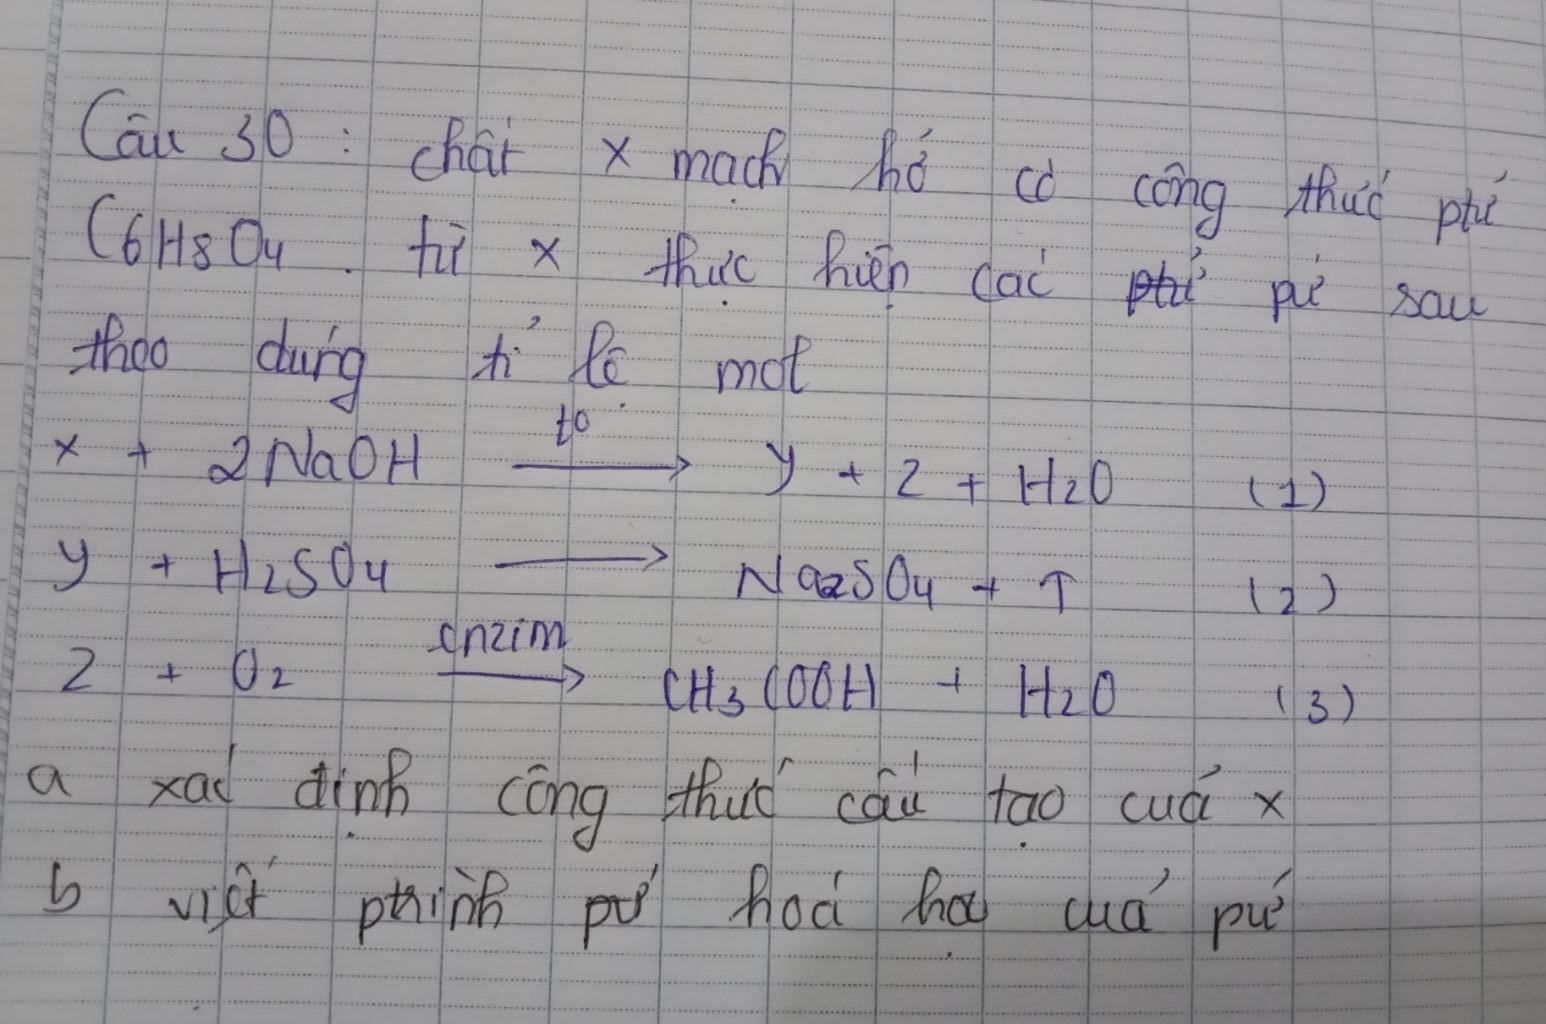 Câu 30 : chất x mạch hở có công thức ptử
C6H8O4 . từ x thực hiện các pứ sau
theo đúng tỉ lệ mol
x + 2NaOH t° → y + z + H2O (1)
y + H2SO4 → Na2SO4 + T (2)
z + O2 enzim → CH3COOH + H2O (3)
a xác định công thức cấu tạo của x
b viết ptrình pứ hoá học của pứ